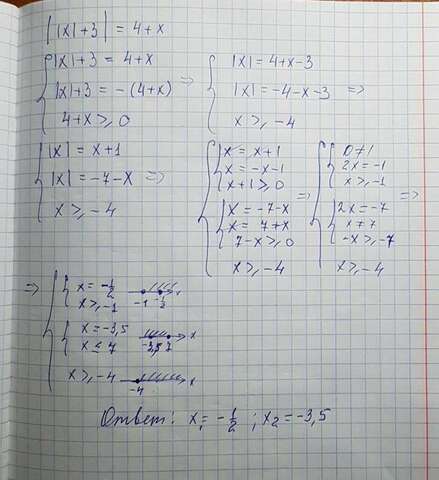 ||x|+3| = 4+x
|x|+3 = 4+x
|x|+3 = -(4+x) =>
4+x ≥ 0
|x| = 4+x-3
|x| = -4-x-3 =>
x ≥ -4
|x| = x+1
|x| = -7-x =>
x ≥ -4
x = x+1
x = -x-1
x+1 ≥ 0
x = -7-x =>
x = 7+x
7-x ≥ 0
x ≥ -4
0≠1
2x = -1
x ≥ -1
2x = -7 =>
x ≠ 7
-x ≥ -7
x ≥ -4
=> x = -1/2
x ≥ -1
-1 -1/2 x
x = -3,5
x ≤ 7
-3,5 7 x
x ≥ -4
-4 x
Ответ: x₁ = -1/2 ; x₂ = -3,5